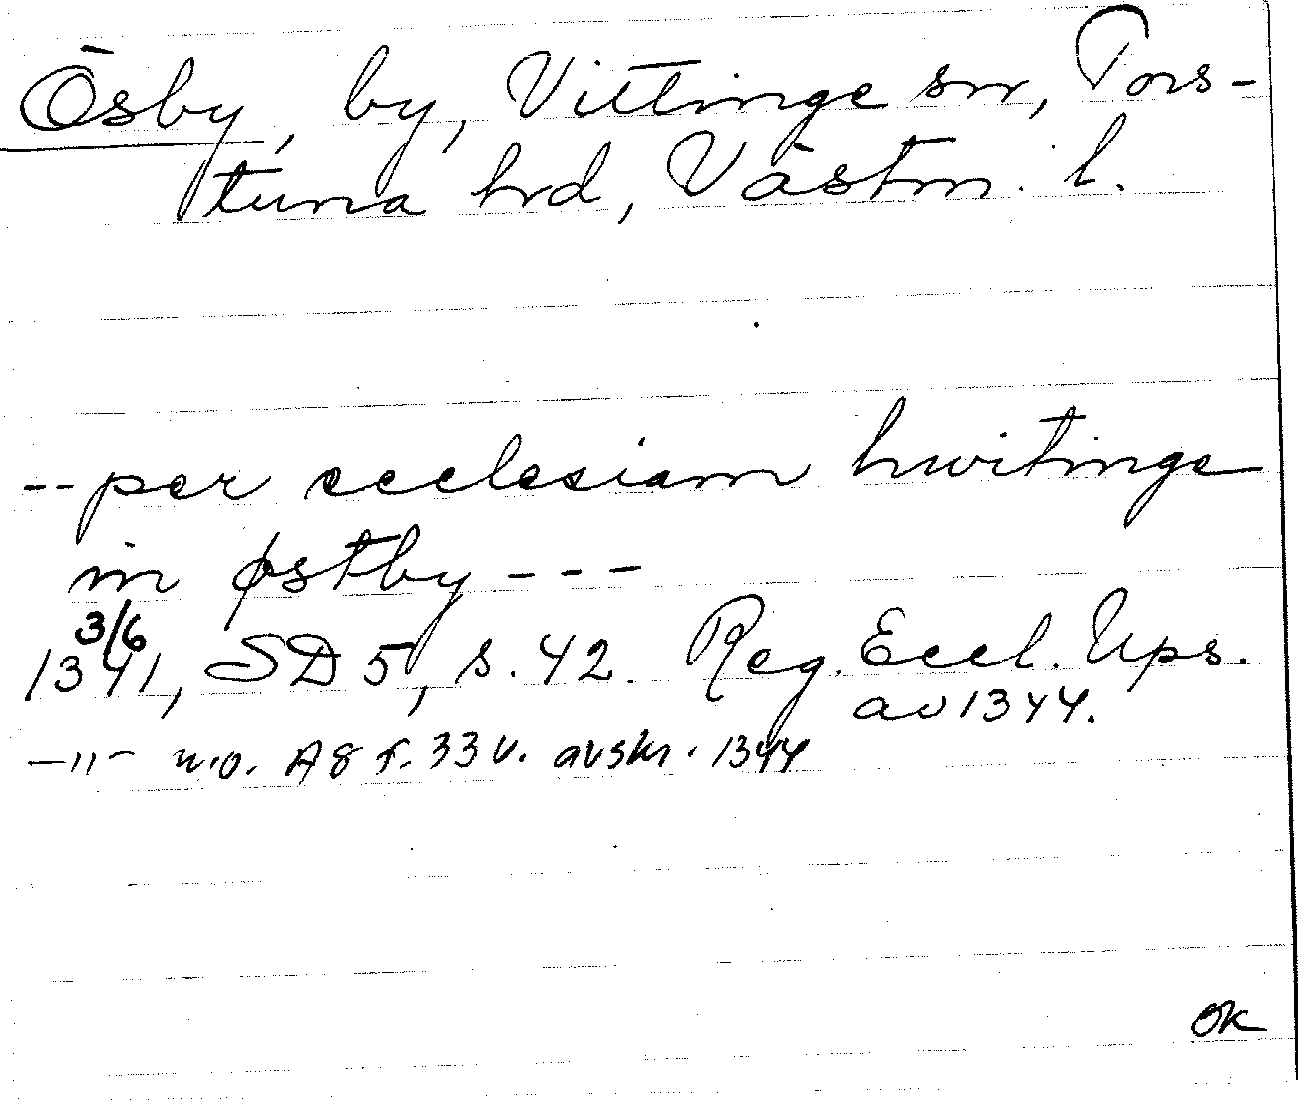 Ösby, by, Vittinge sn, Tors-
tuna hrd, Västm. l.
-- per ecclesiam hwitinge
in østby ---
1341 3/6, SD 5, s. 42. Reg. Eccl. Ups.
av 1344.
—"— n.o. A8 f. 33 v. avskr. 1344
OK